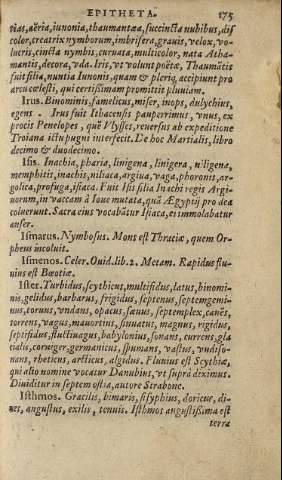 EPITHETA. 175
nias, aëria, iunonia, thaumantæa, succincta nubibus, dis
color, creatrix nymborum, imbrifera, grauis, velox, vo-
lucris, cincta nymbis, curuata, multicolor, nata Atha-
mantis, decora, vda. Iris, vt volunt poëtæ, Thaumātis
fuit filia, nuntia Iunonis, quam & pleriq, accipiunt pro
arcu cœlesti, qui certißimam promittit pluuiam.
Irus. Binominis, famelicus, miser, inops, dulychius,
egens. Irus fuit Ithacensis pauperrimus, vnus, ex
procis Penelopes, quē Vlysses, reuersus ab expeditione
Troiana ictu pugni interfecit. De hoc Martialis, libro
decimo & duodecimo.
Isis. Inachia, pharia, linigena, linigera, niligena,
memphitit, inachis, niliaca, argiua, vaga, phoronis, ar-
golica, profuga, isiaca. Fuit Isis filia Inachi regis Argi-
uorum, in vaccam à Ioue mutata, quā Ægyptij pro dea
coluerunt. Sacra eius vocabātur Isiaca, et immolabatur
anser.
Ismarus. Nymbosus. Mons est Thraciæ, quem Or-
pheus incoluit.
Ismenos. Celer. Ouid. lib. 2. Metam. Rapidus flu-
uius est Bœotiæ.
Ister. Turbidus, scythicus, multifidus, latus, binomi-
nis, gelidus, barbarus, frigidus, septenus, septemgemi-
nus, toruus, vndans, opacus, sæuus, septemplex, canēs,
torrens, vagus, mauortius, sinuatus, magnus, rigidus,
septifidus, fluctiuagus, babylonius, sonans, currens, gla
cialis, corniger, germanicus, spumans, vastus, vndiso-
nans, rheticus, arcticus, algidus. Fluuius est Scythiæ,
qui alio nomine vocatur Danubius, vt suprà diximus.
Diuiditur in septem ostia, autore Strabone.
Isthmos. Gracilis, bimaris, sisyphius, doricus, di-
nes, angustus, exilis, tenuis. Isthmos angustißima est
terra